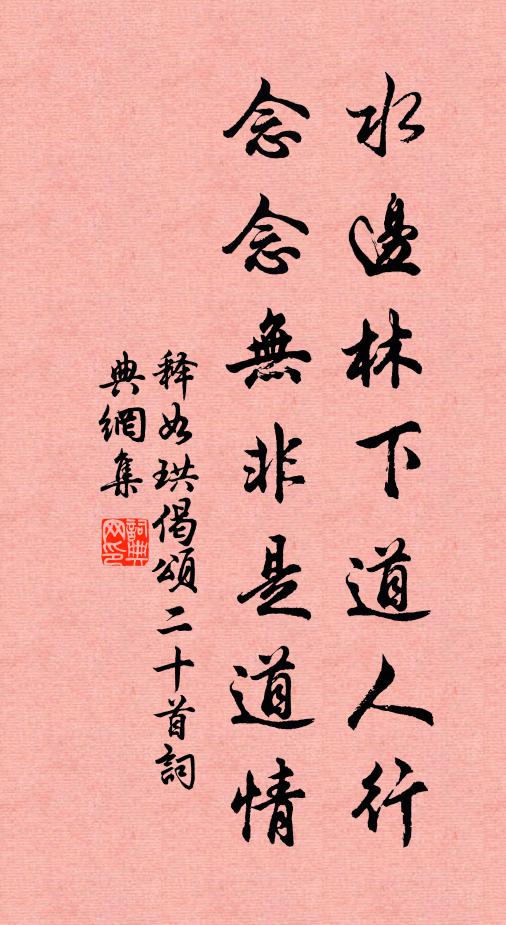 水邊林下道人行
念念無非是道情
釋如珙偈頌二十首詞
典網集
詞典網印